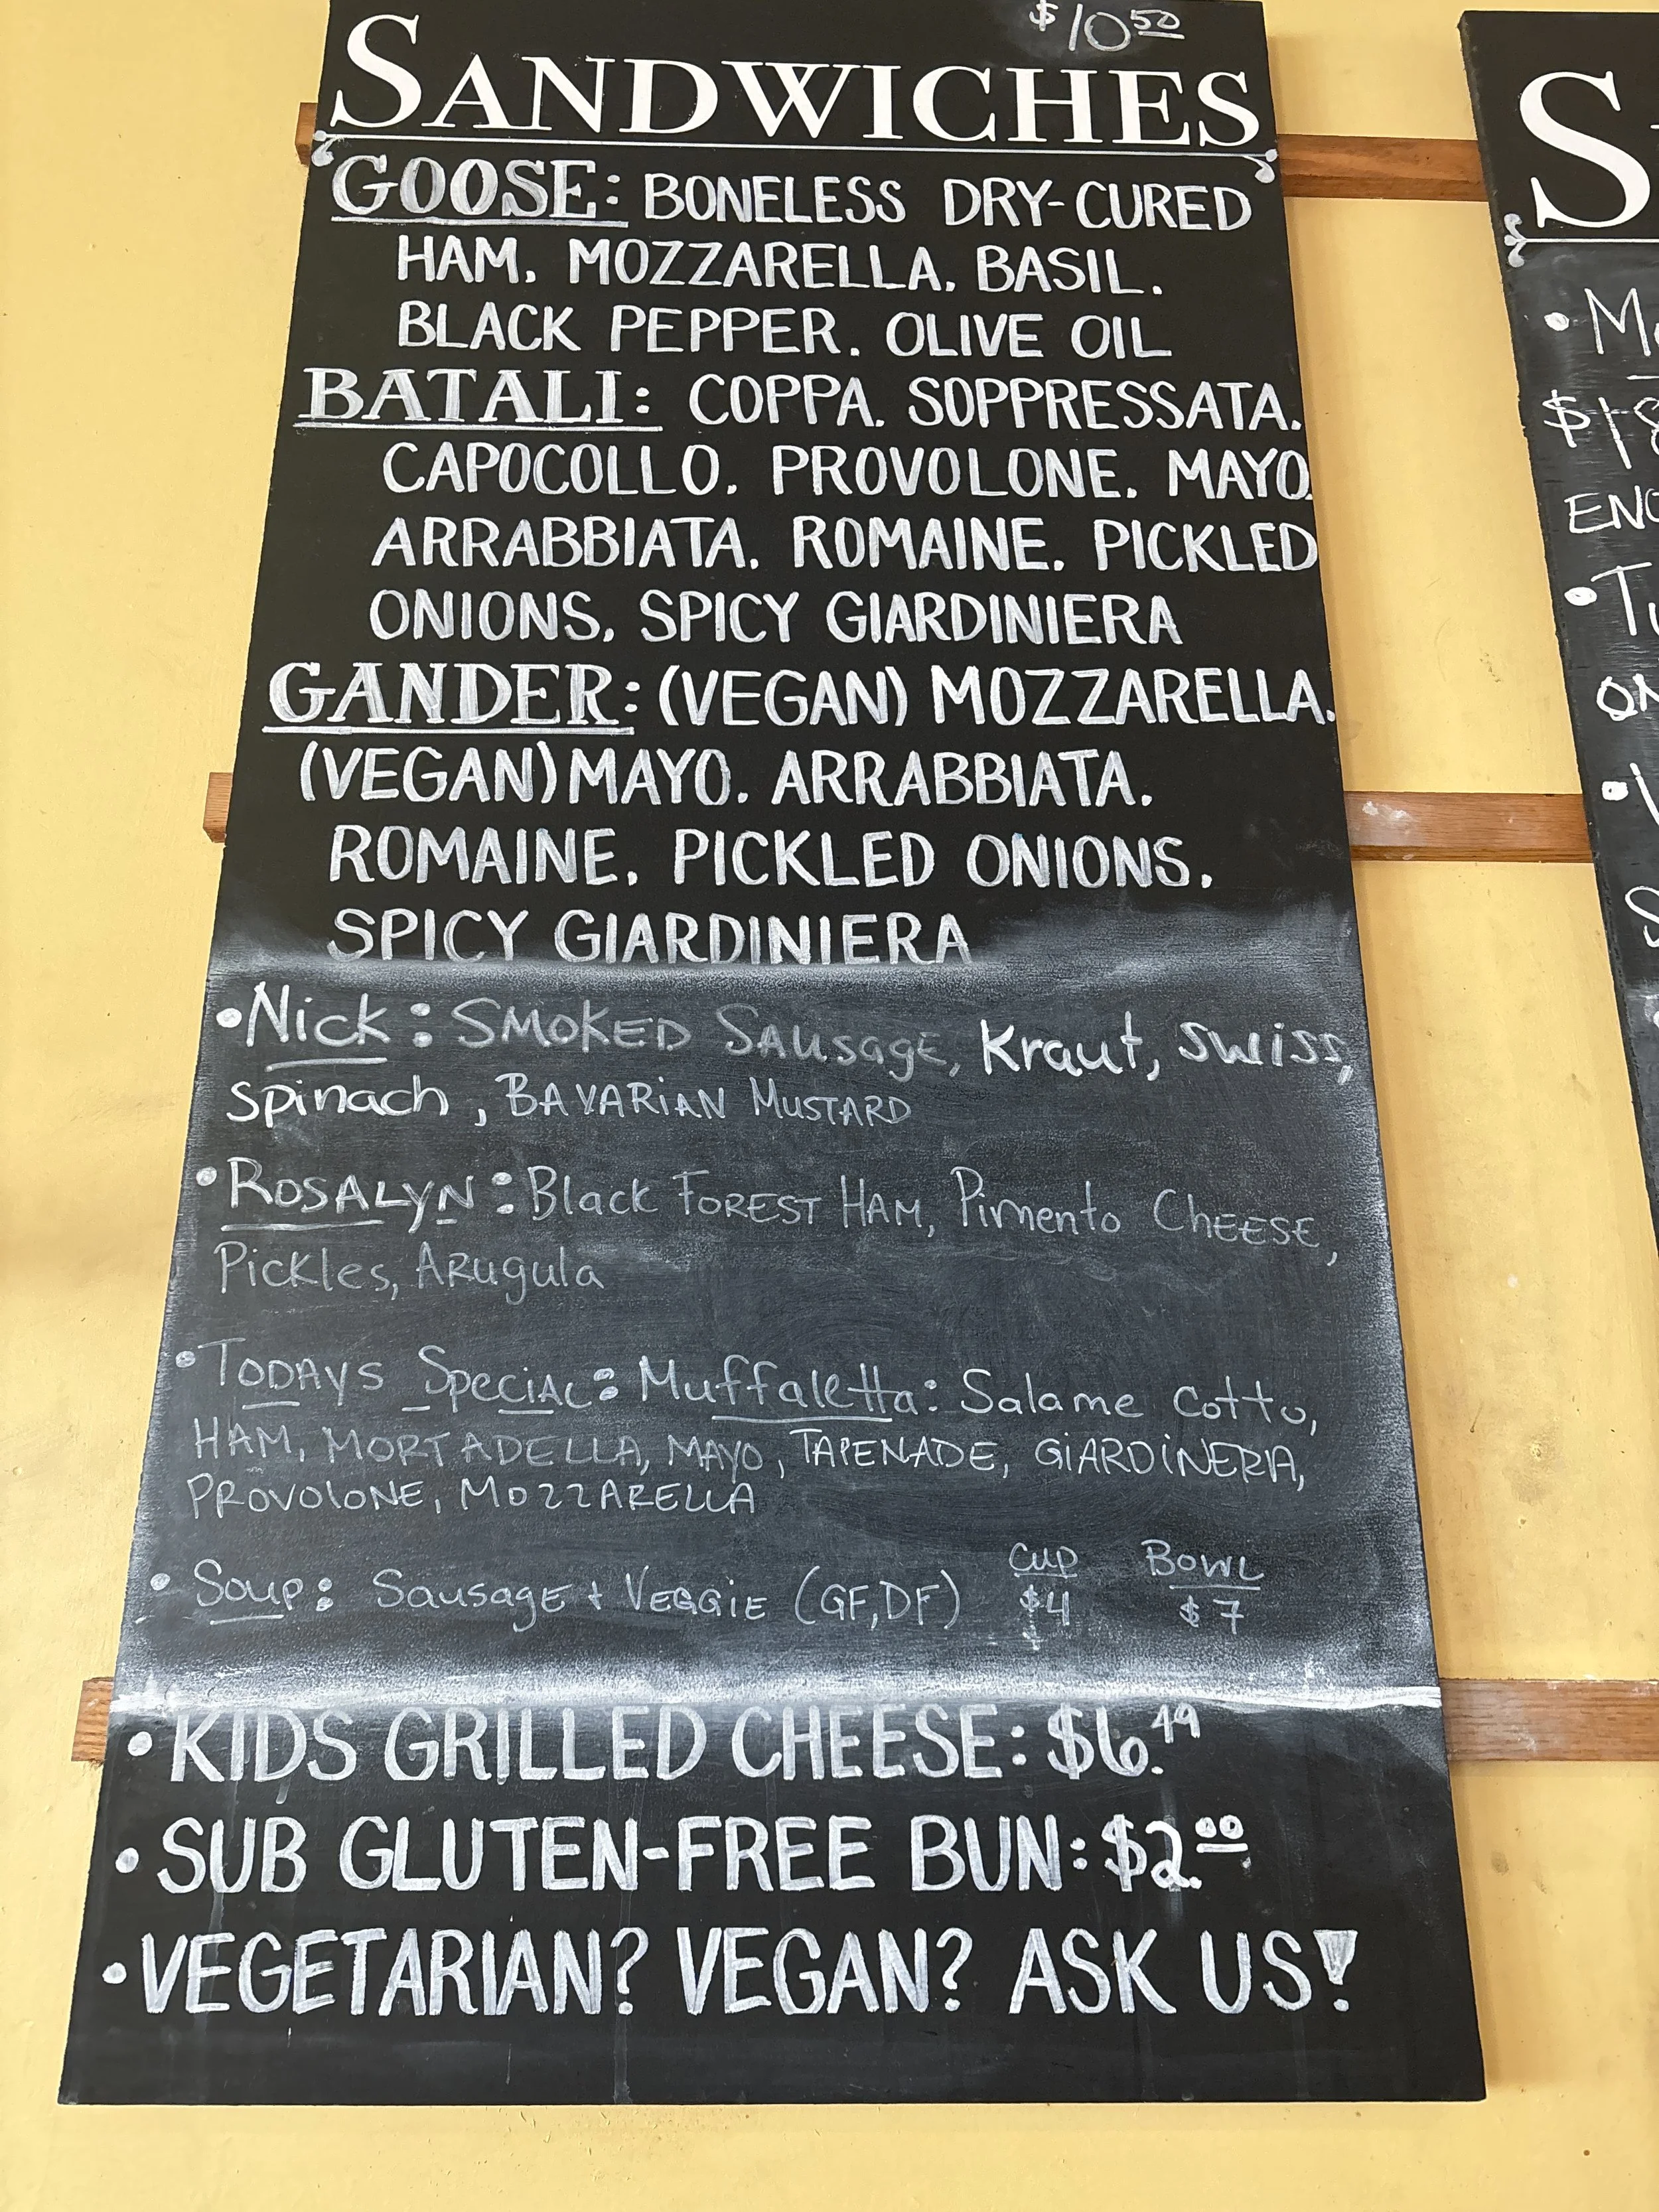 $10 50
SANDWICHES
GOOSE: BONELESS DRY-CURED
HAM, MOZZARELLA, BASIL,
BLACK PEPPER, OLIVE OIL
BATALI: COPPA, SOPPRESSATA,
CAPOCOLLO, PROVOLONE, MAYO,
ARRABBIATA, ROMAINE, PICKLED
ONIONS, SPICY GIARDINIERA
GANDER: (VEGAN) MOZZARELLA,
(VEGAN) MAYO, ARRABBIATA,
ROMAINE, PICKLED ONIONS,
SPICY GIARDINIERA
• Nick: SMOKED SAUSAGE, Kraut, SWISS,
Spinach, BAVARIAN MUSTARD
• ROSALYN: Black FOREST HAM, Pimento CHEESE,
Pickles, ARugula
• TODAYS SPECIAL: Muffaletta: Salame cotto,
HAM, MORTADELLA, MAYO, TAPENADE, GIARDINERIA,
PROVOLONE, MOZZARELLA
• Soup: Sausage + VEGGIE (GF, DF) CUP $4 BOWL $7
• KIDS GRILLED CHEESE: $6.49
• SUB GLUTEN-FREE BUN: $2.00
• VEGETARIAN? VEGAN? ASK US!
S
• M
$18
ENO
• Tu
ON
S